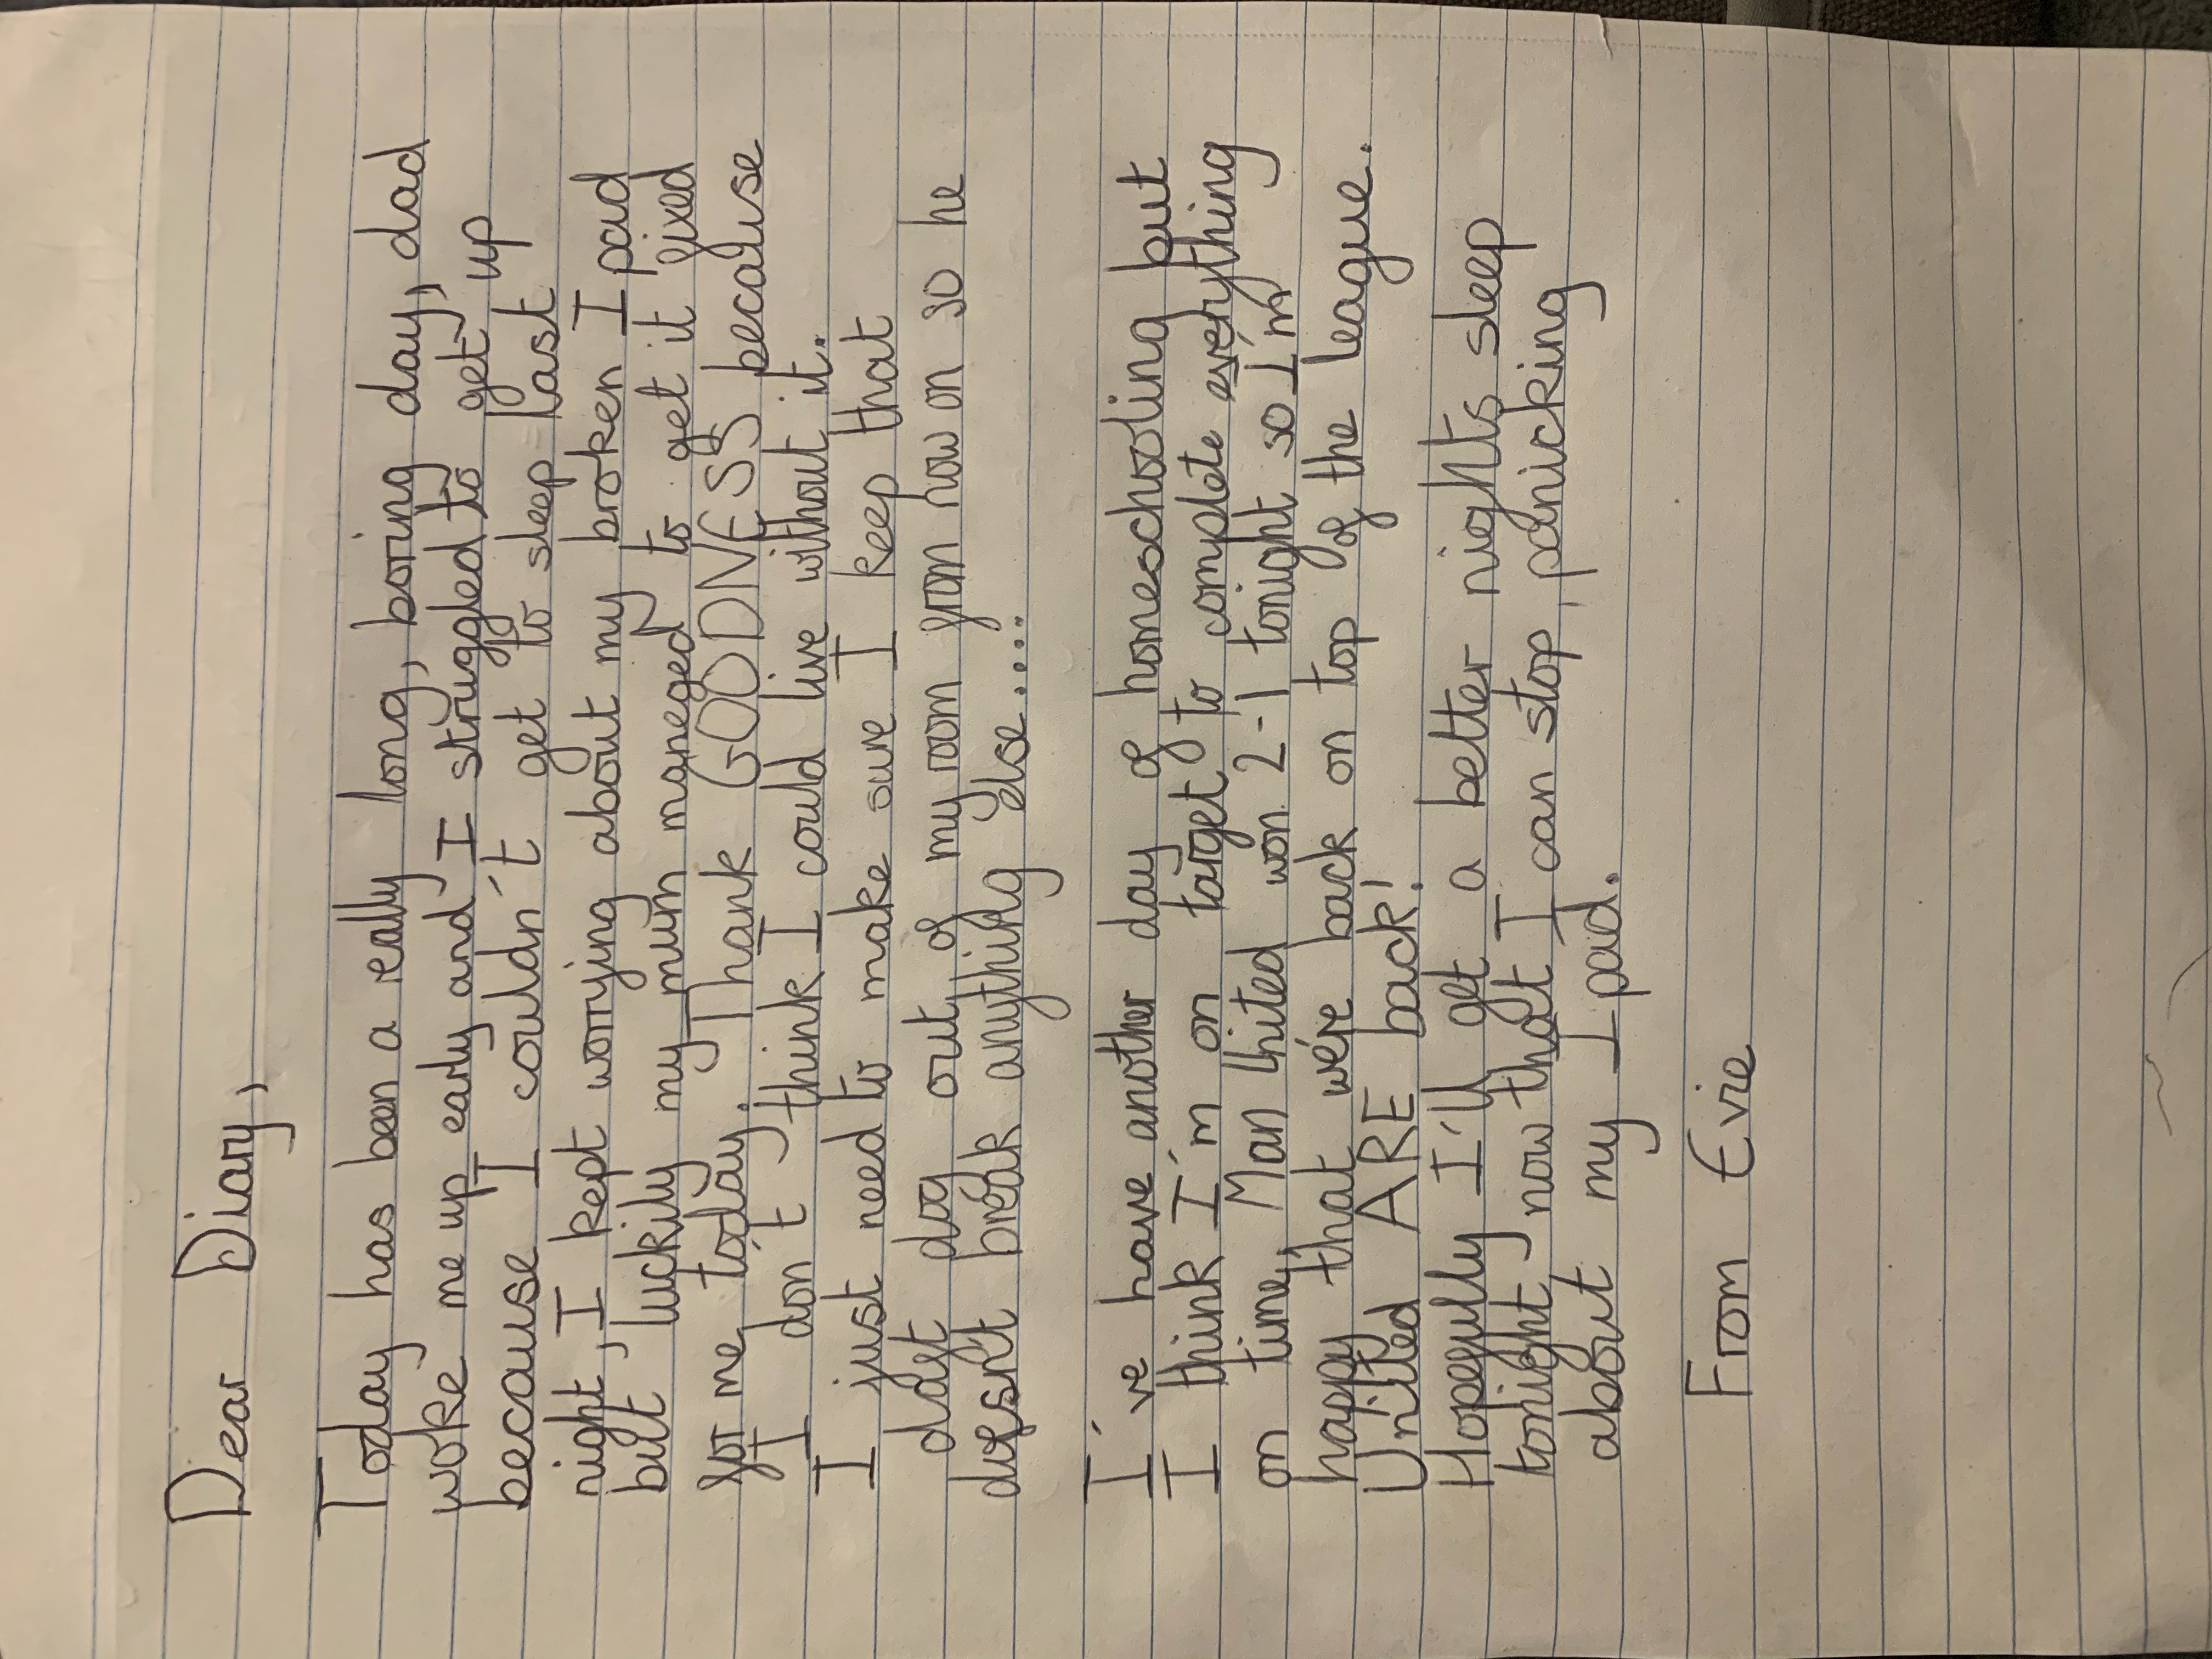 Dear Diary,
Today has been a really long, boring day, dad
woke me up early and I struggled to get up
because I couldn't get to sleep last
night, I kept worrying about my broken I pad
but luckily my mum maneged to get it fixed
for me today. Thank GOODNESS because
I don't think I could live without it.
I just need to make sure I keep that
daft dog out of my room from now on so he
dosent break anything else.....
I've have another day of homeschooling but
I think I'm on target to complete everything
on time, Man United won 2-1 tonight so I'm
happy that we're back on top of the league.
United ARE back!
Hopefully I'll get a better nights sleep
tonight now that I can stop panicking
about my I pad.
From Evie